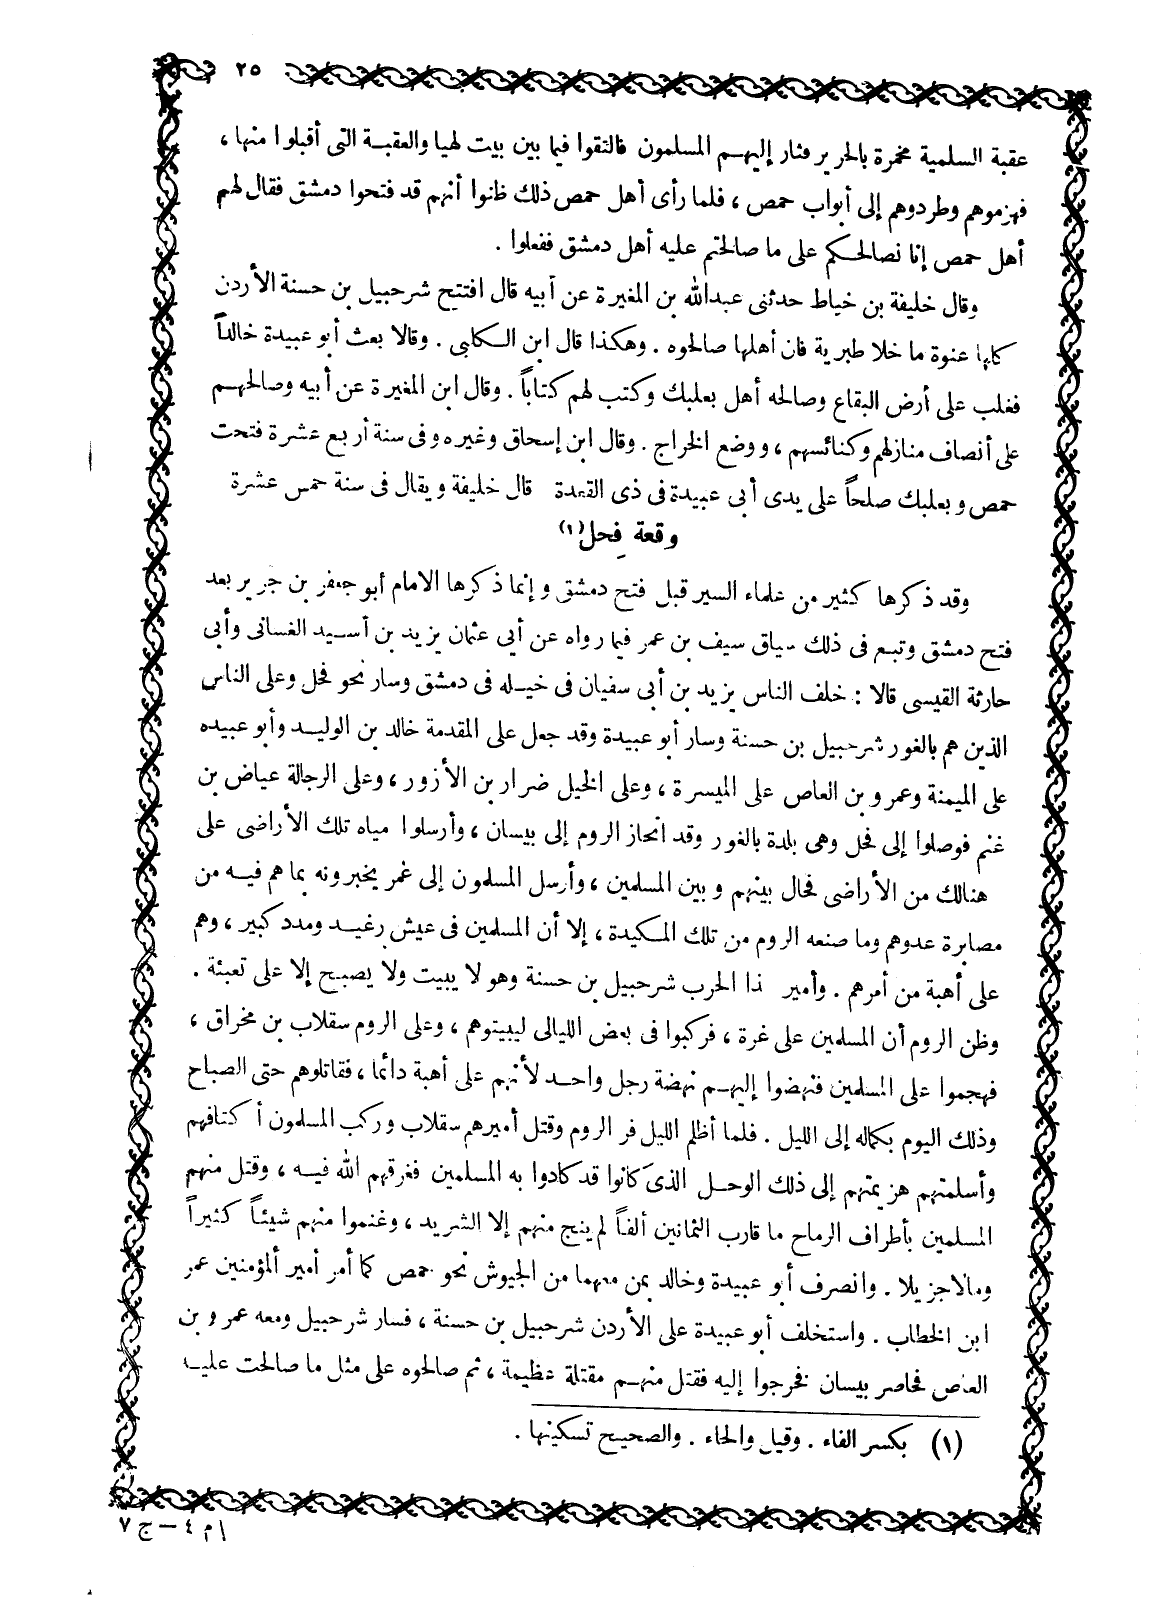 ٢٥
عقبة السلمية مخمرة بالحرير فثار إليهم المسلمون فالتقوا فيما بين بيت لهيا والعقبة التى أقبلوا منها ،
فهزموهم وطردوهم إلى أبواب حمص ، فلما رأى أهل حمص ذلك ظنوا أنهم قد فتحوا دمشق فقال لهم
أهل حمص إنا نصالحكم على ما صالحتم عليه أهل دمشق ففعلوا .
وقال خليفة بن خياط حدثنى عبدالله بن المغيرة عن أبيه قال افتتح شرحبيل بن حسنة الأردن
كلها عنوة ما خلا طبرية فان أهلها صالحوه . وهكذا قال ابن الكلبى . وقالا بعث أبو عبيدة خالداً
فغلب على أرض البقاع وصالحه أهل بعلبك وكتب لهم كتاباً . وقال ابن المغيرة عن أبيه وصالحهم
على أنصاف منازلهم وكنائسهم ، ووضع الخراج . وقال ابن إسحاق وغيره وفى سنة أربع عشرة فتحت
حمص وبعلبك صلحاً على يدى أبى عبيدة فى ذى القعدة قال خليفة ويقال فى سنة خمس عشرة
وقعة فِحل (١)
وقد ذكرها كثير من علماء السير قبل فتح دمشق وإنما ذكرها الامام أبو جعفر بن جرير بعد
فتح دمشق وتبع فى ذلك سياق سيف بن عمر فيما رواه عن أبى عثمان يزيد بن أسيد الغسانى وأبى
حارثة القيسى قالا : خلف الناس يزيد بن أبى سفيان فى خيله فى دمشق وسار نحو فحل وعلى الناس
الذين هم بالغور شرحبيل بن حسنة وسار أبو عبيدة وقد جعل على المقدمة خالد بن الوليد وأبو عبيده
على الميمنة وعمرو بن العاص على الميسرة ، وعلى الخيل ضرار بن الأزور ، وعلى الرجالة عياض بن
غنم فوصلوا إلى فحل وهى بلدة بالغور وقد انحاز الروم إلى بيسان ، وأرسلوا مياه تلك الأراضى على
هنالك من الأراضى فحال بينهم وبين المسلمين ، وأرسل المسلمون إلى عمر يخبرونه بما هم فيه من
مصابرة عدوهم وما صنعه الروم من تلك المكيدة ، إلا أن المسلمين فى عيش رغيد ومدد كبير ، وهم
على أهبة من أمرهم . وأمير ذا الحرب شرحبيل بن حسنة وهو لا يبيت ولا يصبح إلا على تعبئة .
وظن الروم أن المسلمين على غرة ، فركبوا فى بعض الليالى ليبيتوهم ، وعلى الروم سقلاب بن مخراق ،
فهجموا على المسلمين فنهضوا إليهم نهضة رجل واحد لأنهم على أهبة دائما ، فقاتلوهم حتى الصباح
وذلك اليوم بكماله إلى الليل . فلما أظلم الليل فر الروم وقتل أميرهم سقلاب وركب المسلمون أكتافهم
وأسلمتهم هزيمتهم إلى ذلك الوحل الذى كانوا قد كادوا به المسلمين فغرقهم الله فيه ، وقتل منهم
المسلمين بأطراف الرماح ما قارب الثمانين ألفاً لم ينج منهم إلا الشريد ، وغنموا منهم شيئاً كثيراً
ومالا جزيلا . وانصرف أبو عبيدة وخالد بمن معهما من الجيوش نحو حمص كما أمر أمير المؤمنين عمر
ابن الخطاب . واستخلف أبو عبيدة على الأردن شرحبيل بن حسنة ، فسار شرحبيل ومعه عمرو بن
العاص فحاصر بيسان فخرجوا إليه فقتل منهم مقتلة عظيمة ، ثم صالحوه على مثل ما صالحت عليه
(١) بكسر الفاء . وقيل والحاء . والصحيح تسكينها .
م ٤ – ج ٧